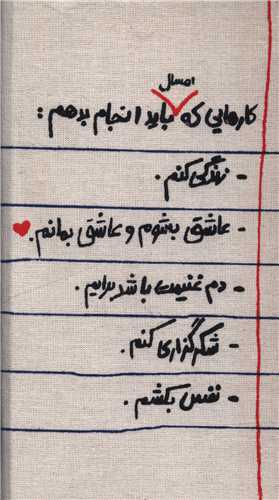 امسال
کارهایی که باید انجام بدهم:
- زندگی کنم.
- عاشق بشوم و عاشق بمانم.
- دم غنیمت باشد برایم.
- شکرگزاری کنم.
- نفس بکشم.